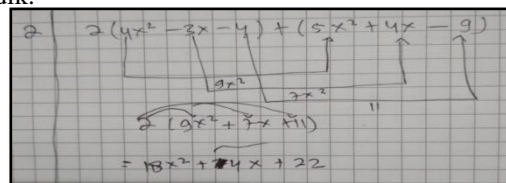 uik.
2 2(4x² - 3x - 4) + (5x² + 4x - 9)
9x²
7x²
11
2 (9x² + 7x + 11)
= 18x² + 14x + 22